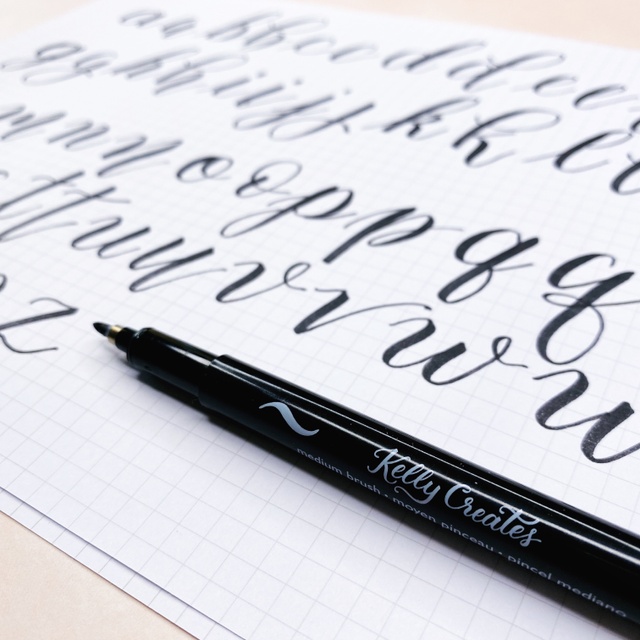 a a b b c c d d e e
g g h h i i j j k k l l
m n n o o p p q q
t t u u v v w w
z z
Kelly Creates
medium brush • moyen pinceau • pincel mediano